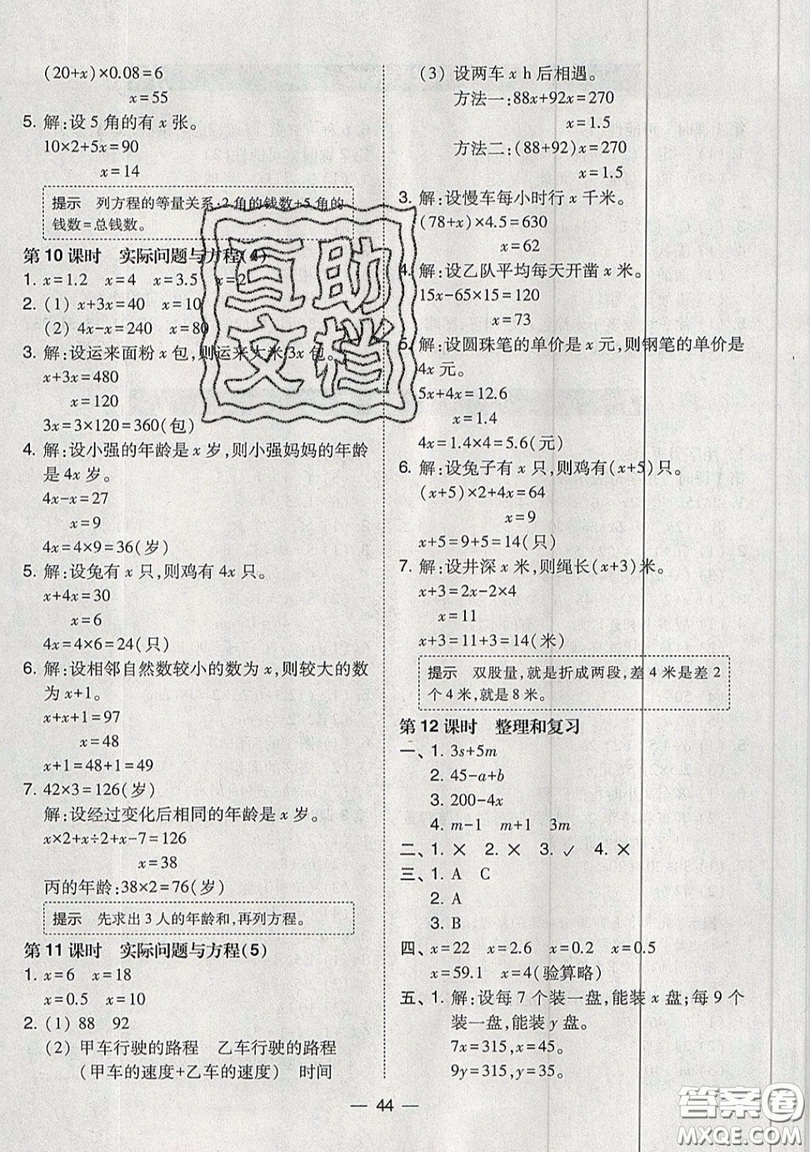 (20+x)×0.08=6
x=55
5. 解:设 5 角的有 x 张。
10×2+5x=90
x=14
提示 列方程的等量关系:2 角的钱数+5 角的
钱数=总钱数。
第 10 课时 实际问题与方程(4)
1. x=1.2 x=4 x=3.5 x=2
2. (1) x+3x=40 x=10
(2) 4x-x=240 x=80
3. 解:设运来面粉 x 包,则运来大米 3x 包。
x+3x=480
x=120
3x=3×120=360(包)
4. 解:设小强的年龄是 x 岁,则小强妈妈的年龄
是 4x 岁。
4x-x=27
x=9
4x=4×9=36(岁)
5. 解:设兔有 x 只,则鸡有 4x 只。
x+4x=30
x=6
4x=4×6=24(只)
6. 解:设相邻自然数较小的数为 x,则较大的数
为 x+1。
x+x+1=97
x=48
x+1=48+1=49
7. 42×3=126
解:设经过变化后相同的年龄是 x 岁。
x×2+x÷2+x-7=126
x=38
丙的年龄:38×2=76(岁)
提示 先求出 3 人的年龄和,再列方程。
第 11 课时 实际问题与方程(5)
1. x=6 x=18
x=0.5 x=10
2. (1) 88 92
(2) 甲车行驶的路程 乙车行驶的路程
(甲车的速度+乙车的速度) 时间
(3) 设两车 x h 后相遇。
方法一:88x+92x=270
x=1.5
方法二:(88+92)x=270
x=1.5
3. 解:设慢车每小时行 x 千米。
(78+x)×4.5=630
x=62
4. 解:设乙队平均每天开凿 x 米。
15x-65×15=120
x=73
5. 解:设圆珠笔的单价是 x 元,则钢笔的单价是
4x 元。
5x+4x=12.6
x=1.4
4x=1.4×4=5.6(元)
6. 解:设兔子有 x 只,则鸡有(x+5)只。
(x+5)×2+4x=64
x=9
x+5=9+5=14(只)
7. 解:设井深 x 米,则绳长(x+3)米。
x+3=2x-2×4
x=11
x+3=11+3=14(米)
提示 双股量,就是折成两段,差 4 米是差 2
个 4 米,就是 8 米。
第 12 课时 整理和复习
一、1. 3s+5m
2. 45-a+b
3. 200-4x
4. m-1 m+1 3m
二、1. × 2. × 3. ✓ 4. ×
三、1. A C
2. A
3. B
四、x=22 x=2.6 x=0.2 x=0.5
x=59.1 x=4(验算略)
五、1. 解:设每 7 个装一盘,能装 x 盘;每 9 个
装一盘,能装 y 盘。
7x=315,x=45。
9y=315,y=35。
44
互助
文档
答案圈
MXQE.COM